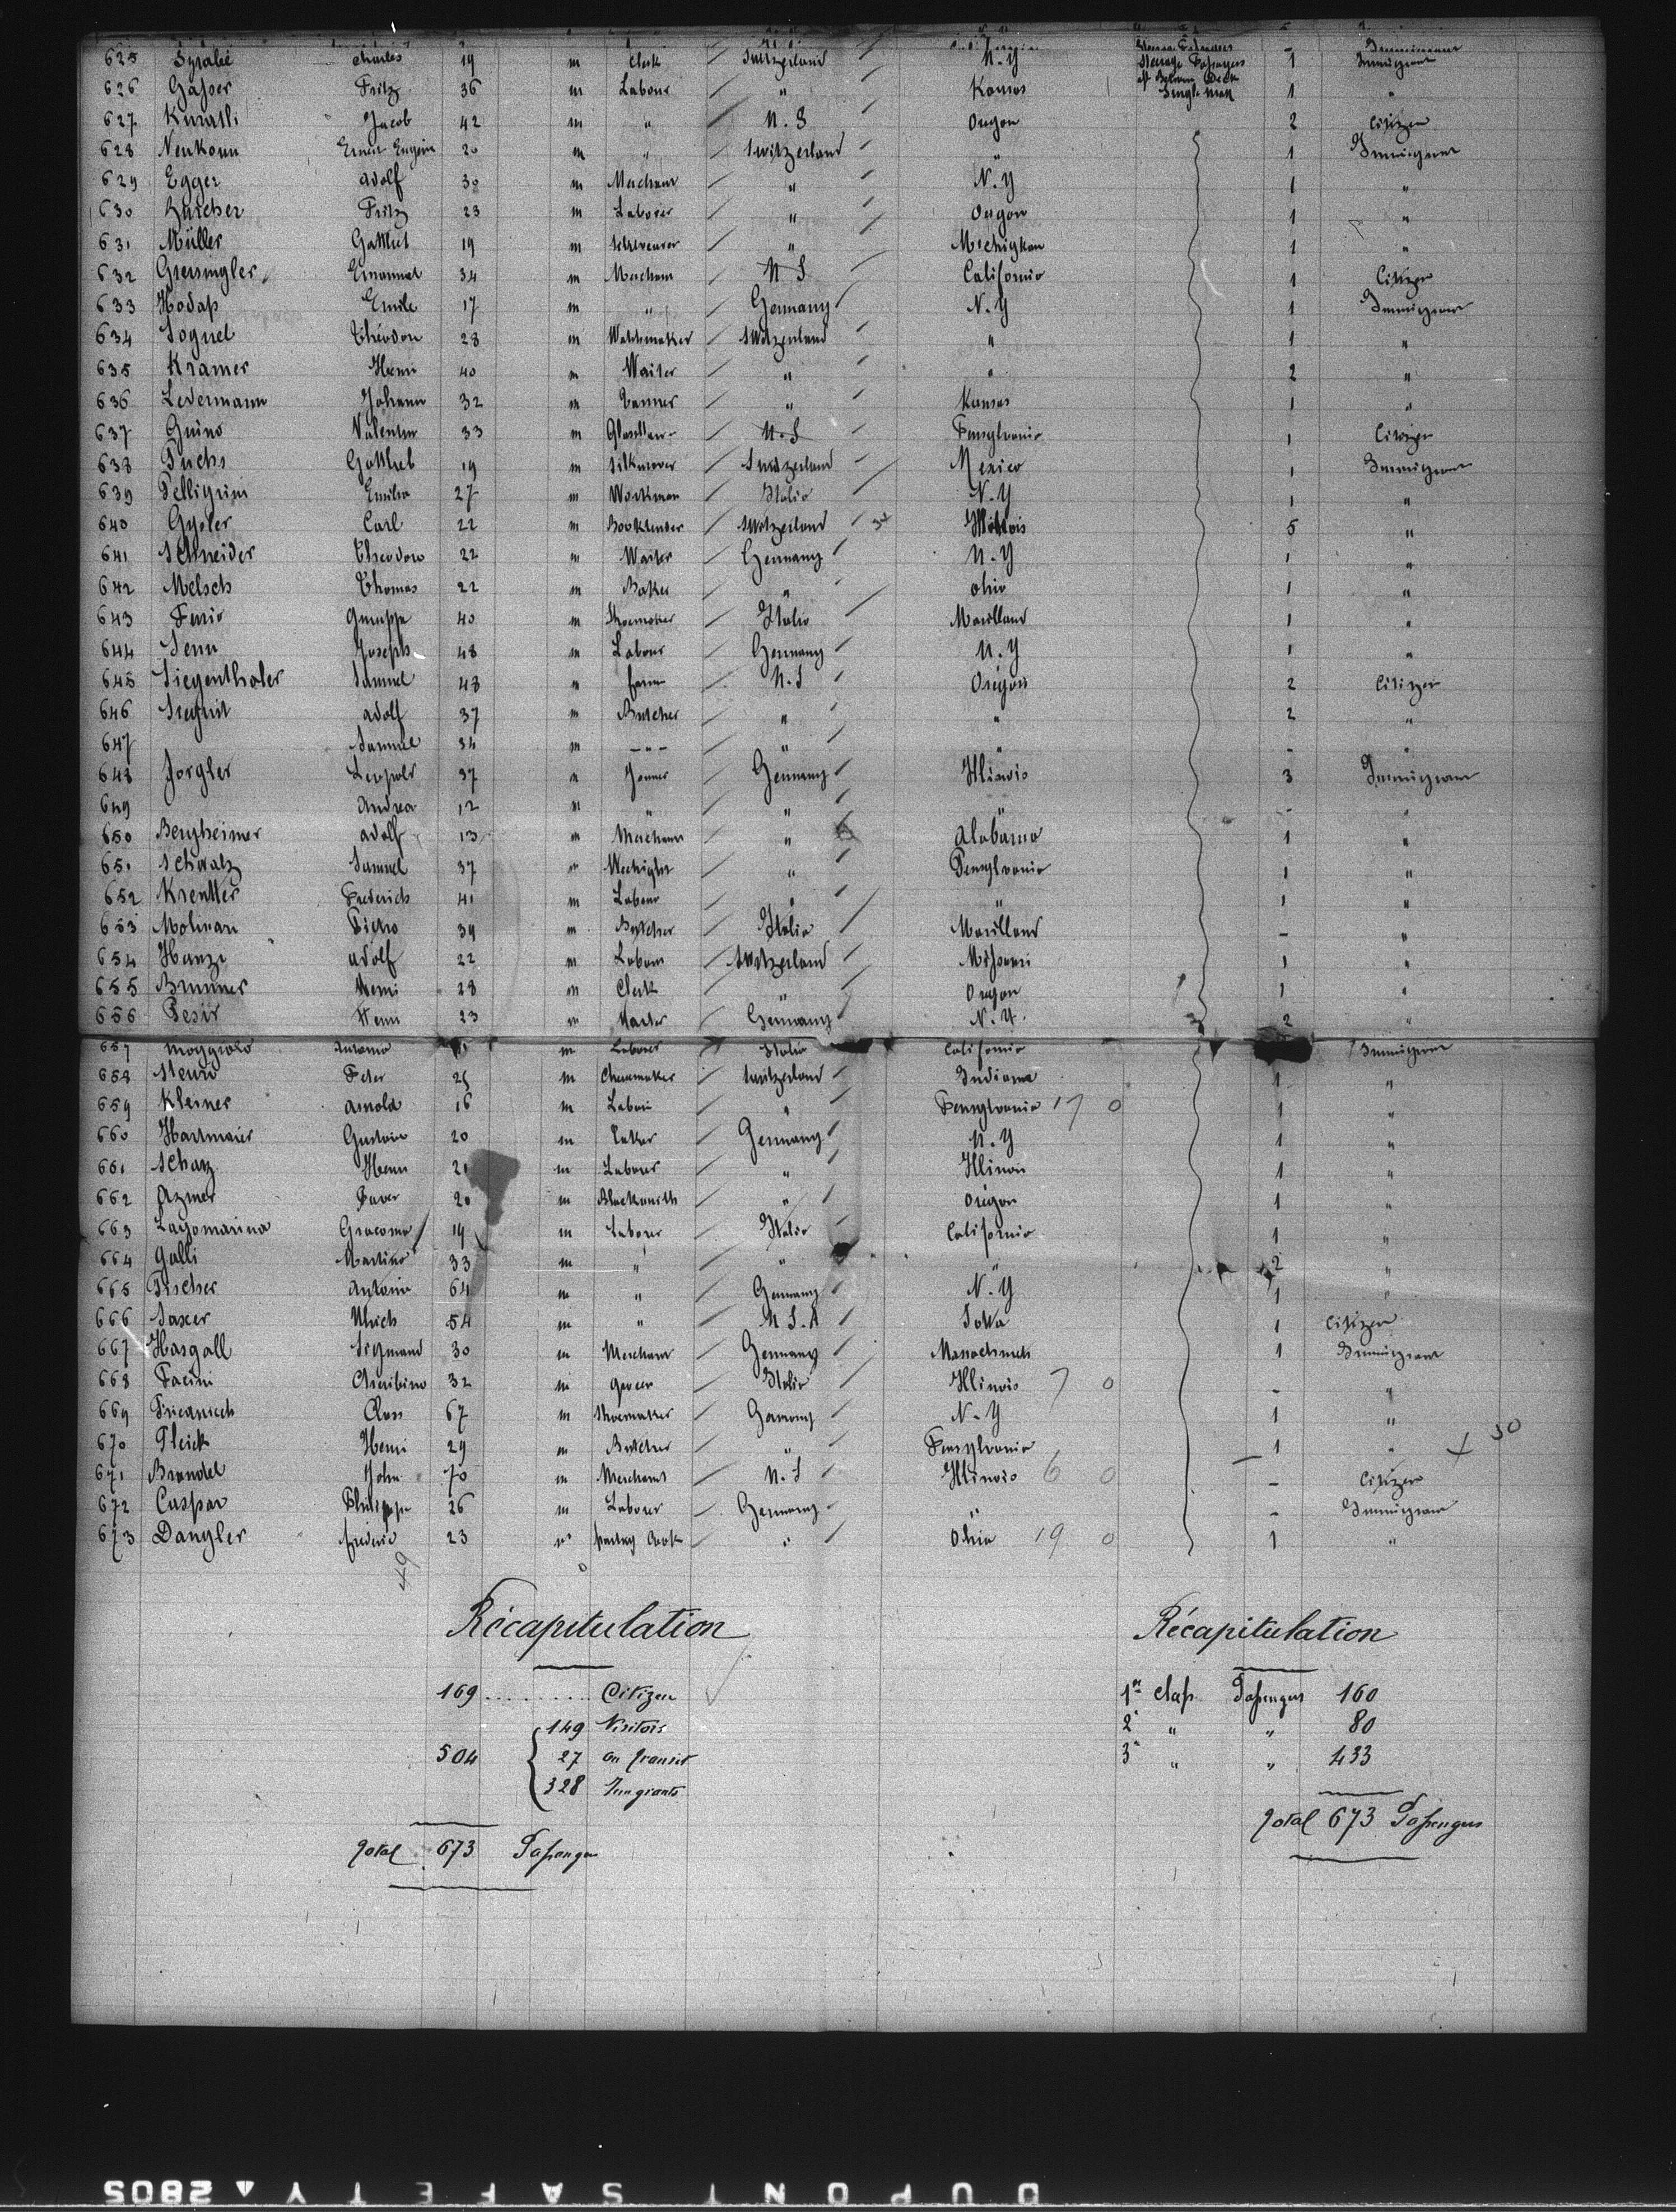 625 Charles 19 m Clerk Switzerland N.Y Steerage Passengers 1 Immigrant
626 Gasser Fritz 36 m Labour " Kansas aft Between Deck Single men 1 "
627 Kuratli Jacob 42 m " U.S Oregon 2 Citizen
628 Neukomm Ernest Eugein 20 m " Switzerland " 1 Immigrant
629 Egger Adolf 30 m Merchant " N.Y 1 "
630 Zurcher Fritz 23 m Laborer " Oregon 1 "
631 Müller Gottlieb 19 m " Michigkan 1 "
632 Emanuel 34 m Merchant U S California 1 Citizen
633 Hodap Emile 17 m " Germany N.Y 1 Immigrant
634 Sognel Théodore 28 m Watchmaker Switzerland " 1 "
635 Kramer Henri 40 m Waiter " " 2 "
636 Ledermann Johann 32 m Tanner " Kansas 1 "
637 Guino Valentin 33 m U.S Pensylvania 1 Citizen
638 Fuchs Gottlieb 19 m Switzerland Mexico 1 Immigrant
639 Pelligrini Emilio 27 m Workman Italia N.Y 1 "
640 Gysler Carl 22 m Bookbinder Switzerland 34 Illinois 5 "
641 Schneider Theodore 22 m Waiter Germany N.Y 1 "
642 Melsch Thomas 22 m Baker " Ohio 1 "
643 40 m Shoemaker Italia Marilland 1 "
644 Senn Joseph 48 m Labour Germany N.Y 1 "
645 Siegenthaler Samuel 48 " farm U.S Orégon 2 Citizen
646 Adolf 37 m Butcher " " 2 "
647 Samuel 34 m -"- " " - "
648 Jorgler Leopold 37 m Germany Illinois 3 Immigrant
649 Andrea 12 m " " " - "
650 Bergheimer Adolf 13 m Merchant " Alabama 1 "
651 Schwalz Samuel 37 m " Pensylvania 1 "
652 Krentter Frederich 41 m Labour " " 1 "
653 Molinari 39 m Butcher Italia Marilland - "
654 Adolf 22 m Labour Switzerland Missouri 1 "
655 Brunner Henri 28 m Clerk " Oregon 1 "
656 Henri 23 m Germany N.Y. 2 "
657 Antonio m Laborer Italia California Immigrant
658 Peter 25 m Switzerland Indiana 1 "
659 Kleiner Arnold 16 m " Pensylvania 17 0 1 "
660 Hartmaier Gustave 20 m Germany N.Y 1 "
661 Schaz Henri 21 m Laborer " Illinois 1 "
662 Azmer 20 m Blacksmith " Orégon 1 "
663 Lagomarina Giacomo 19 m Laborer Italia California 1 "
664 Galli Martino 33 m " " " 2 "
665 Fischer Antonio 64 m " Germany N.Y 1 "
666 Saxer Ulrich 54 m " U S.A Iowa 1 Citizen
667 Hasgall Sigmund 30 m Merchant Germany 1 Immigrant
668 Facini Cherubino 32 m Italia Illinois 7 0 - "
669 67 m Shoemaker Germany N.Y 1 "
670 Fleick Henri 29 m Butcher " Pensylvania 1 " + 30
671 Brandel John 70 m Merchant U.S Illinois 6 0 - Citizen
672 Caspar Philippe 26 m Laborer Germany " - Immigrant
673 Dangler frederic 23 m pastry Cook " Ohio 19 0 1 "
49 0
Récapitulation
169 ......... Citizen
149 Visitors
504 { 27 on transit
328 Imigrants
total 673 Passenger
Récapitulation
1re class Passengers 160
2e " " 80
3e " " 433
total 673 Passengers
DUPONT SAFETY 2805